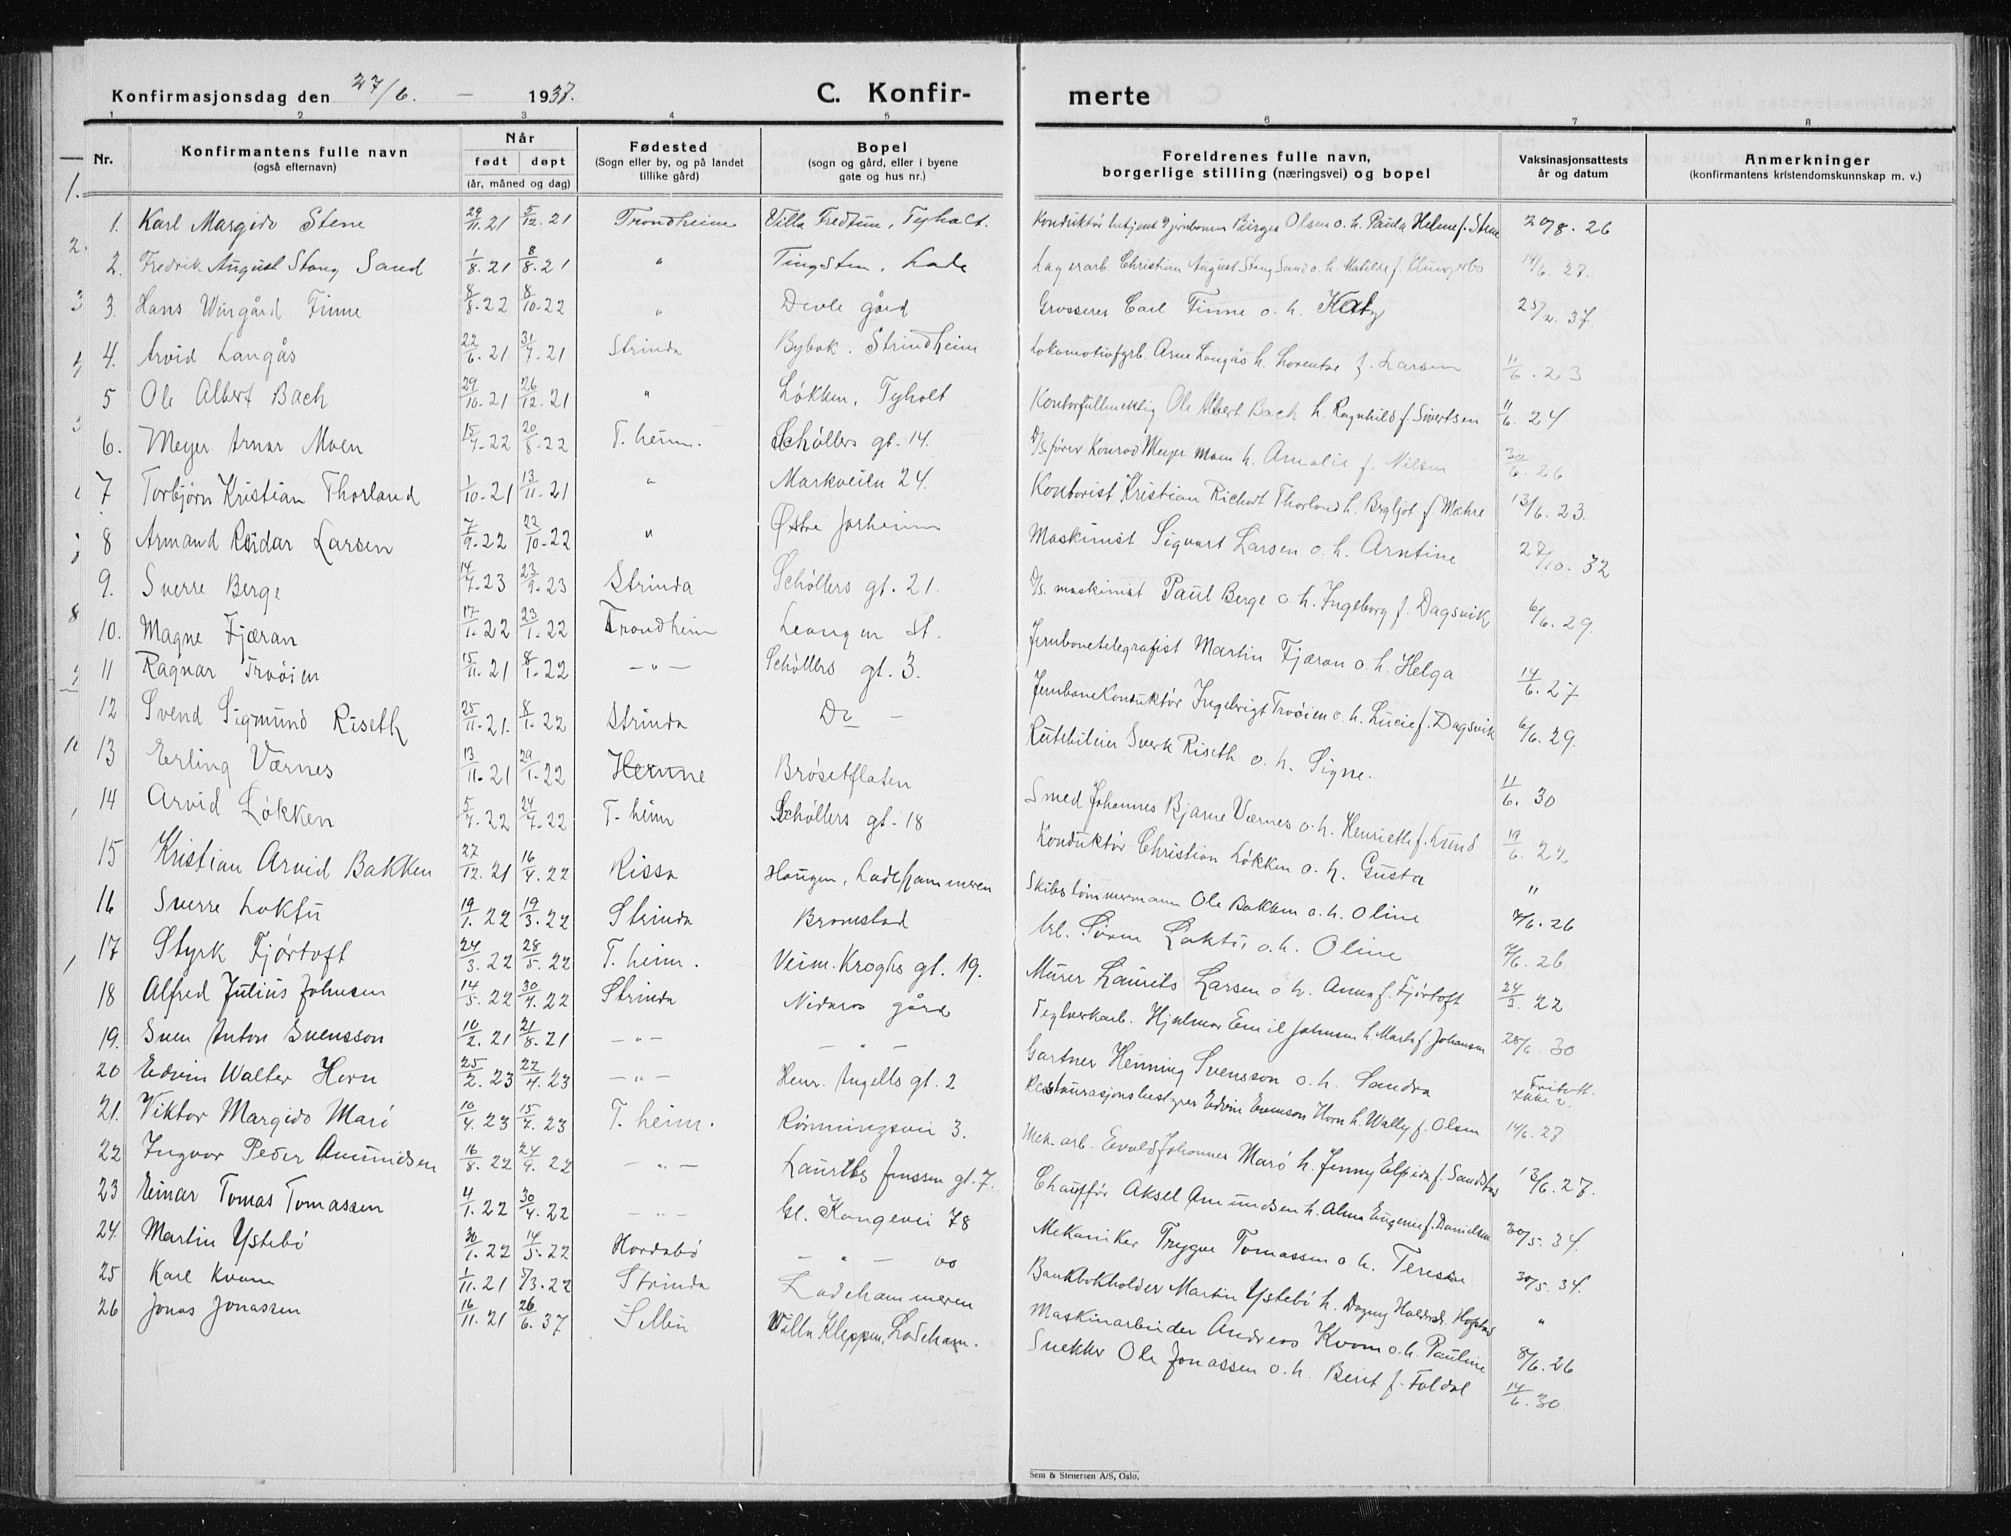 Konfirmasjonsdag den 27/6. – 1937. C. Konfir- merte
1 2 3 4 5 6 7 8
Nr. Konfirmantens fulle navn (også efternavn) Når født døpt (år, måned og dag) Fødested (Sogn eller by, og på landet tillike gård) Bopel (sogn og gård, eller i byene gate og hus nr.) Foreldrenes fulle navn, borgerlige stilling (næringsvei) og bopel Vaksinasjonsattests år og datum Anmerkninger (konfirmantens kristendomskunnskap m. v.)
1. Karl Margido Stene 29/11.21 5/12.21 Trondheim Villa Fredtun, Tyholt. Konduktør Birger Olsen o. h. Paula Helene f. Stene 20/8.26
2. Fredrik August Stang Sand 1/8.21 8/8.21 " Tingsten, Lade Lagerarb. Christian August Stang Sand o. h. Matilde f. 14/6.28.
3. Hans Wingård Finne 8/8.22 8/10.22 " Devle gård Grosserer Carl Finne o. h. Katy 25/2.37.
4. Arvid Langås 22/6.21 31/7.21 Strinda Bybok. Strindheim Lokomotivfyrb. Arne Langås h. Lorentse f. Larsen 11/6.23
5 Ole Albert Bach 29/10.21 26/12.21 " Løkken, Tyholt Kontorfullmektig Ole Albert Bach h. Ragnhild f. Sivertsen 11/6.24
6. Meyer Arnar Moen 15/7.22 20/8.22 T.heim. Schøllers gt. 14. D/S. fører Konrad Meyer Moen h. Amalie f. Nilsen 30/6.26
7 Torbjørn Kristian Thorland 1/10.21 13/11.21 " Markveien 24. Kontorist Kristian Richart Thorland h. Bergljot f. Mæhre 13/6.23.
8 Armand Reidar Larsen 7/9.22 22/10.22 " Østre Jarheim Maskinist Sigvart Larsen o. h. Arntine 27/10.32
9. Sverre Berge 14/7.23 23/9.23 Strinda Schøllers gt. 21. D/S. maskinist Paul Berge o. h. Ingeborg f. Dagsvik 6/6.29.
10. Magne Fjæran 17/1.22 23/1.22 Trondheim Leangen St. Jernbanetelegrafist Martin Fjæran o. h. Helga 14/6.27
11 Ragnar Trøøien 15/11.21 8/1.22 – " – Schøllers gt. 3. Jernbanekonduktør Ingebrigt Trøøien o. h. Lucie f. Dagsvik 6/6.29.
12 Svend Sigmund Riseth 25/11.21. 8/1.22 Strinda Do – Rutebileier Sverk Riseth o. h. Signe. 11/6.30
13 Erling Værnes 13/11.21 29/1.22 Hemne Brøsetflaten Smed Johannes Bjarne Værnes o. h. Henriette f. Lund 19/6.22
14 Arvid Løkken 5/4.22 24/7.22 T.heim Schøllers gt. 18 Konduktør Christian Løkken o. h. Gusta "
15 Kristian Arvid Bakken 27/12.21 16/4.22 Rissa Haugen, Ladehammeren Skibstømmermann Ole Bakken o. h. Oline 7/6.26
16 Sverre Loktu 19/1.22 19/3.22 Strinda Bromstad Arb. Søren Loktu o. h. Oline 7/6.26
17 Styrk Fjørtoft 24/3.22 28/5.22 T.heim. Veim. Kroghs gt. 19. Murer Laurits Larsen o. h. Anna f. Fjørtoft 24/2.22
18 Alfred Julius Johnsen 14/5.22 30/7.22 Strinda Nidaros gård Teglverkarb. Hjalmar Emil Johnsen h. Marta f. Johansen 28/6.30
19. Sven Anton Svensson 10/2.21 21/8.21 – " – – " – Gartner Henning Svensson o. h. Sandra
20 Edvin Walter Horn 25/2.23 22/4.23 – " – Henr. Angells gt. 2 Restaurasjonsbestyrer Edvin Evenson Horn h. Wally f. Olsen 14/6.28
21. Viktor Margido Marø 10/4.23 15/7.23 T.heim. Rønningsvei 3. Mek. arb. Evald Johannes Marø h. Jenny Elfrida f. Sandstad 13/6.28.
22 Ingvar Peder Amundsen 16/8.22 24/9.22 – " – Laurits Jenssen gt. 7. Chauffør Aksel Amundsen h. Alma Eugenie f. Danielsen 30/5.34.
23 Einar Tomas Tomassen 4/1.22 30/4.22 – " – Gl. Kongevei 78 Mekaniker Trygve Tomassen o. h. Terese 30/5.34.
24. Martin Ystebø 30/1.22 14/5.22 Hordabø – " – 00 Bankbokholder Martin Ystebø h. Dagny f. Hopstad "
25 Karl Kvam 1/11.21 5/3.22 Strinda Ladehammeren Maskinarbeider Andreas Kvam o. h. Pauline 8/6.26
26 Jonas Jonassen 16/11.21 26/6.37 Villa Kleppen, Ladeham. Snekker Ole Jonassen o. h. Berit f. Foldal 14/6.30
Sem & Stenersen A/S, Oslo.